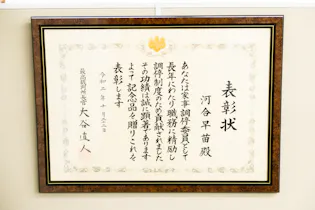 表彰状
河合早苗殿
あなたは家事調停委員として
長年にわたり職務に精励し
調停制度のため貢献されました
その功績は誠に顕著であります
よって記念品を贈りこれを
表彰します
令和二年十月
最高裁判所長官 大谷直人